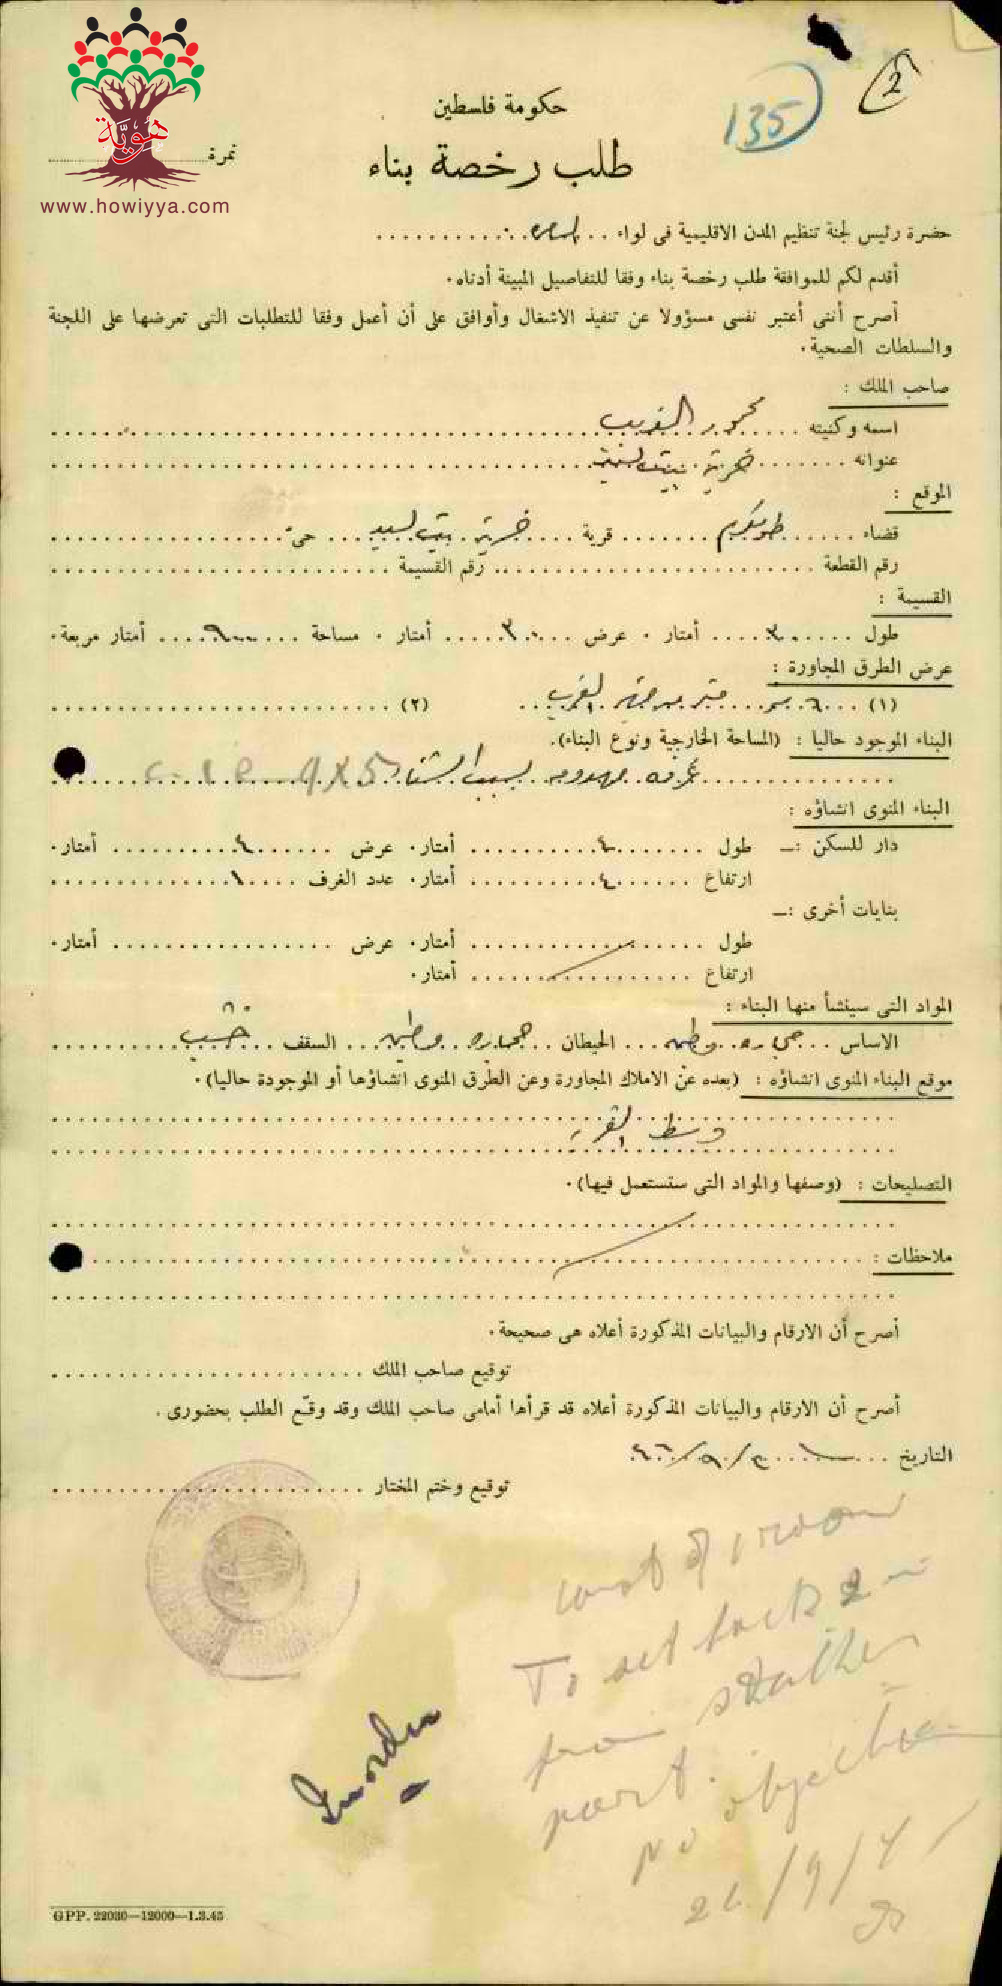 هوية
www.howiyya.com
135
2
حكومة فلسطين
نمرة
طلب رخصة بناء
حضرة رئيس لجنة تنظيم المدن الاقليمية في لواء
أقدم لكم للموافقة طلب رخصة بناء وفقا للتفاصيل المبينة أدناه.
أصرح أنني أعتبر نفسي مسؤولا عن تنفيذ الاشغال وأوافق على أن أعمل وفقا للمتطلبات التي تعرضها على اللجنة
والسلطات الصحية.
صاحب الملك :
اسمه وكنيته محمود
عنوانه خربة بيت ليد
الموقع :
قضاء طولكرم قرية خربة بيت ليد حي
رقم القطعة رقم القسيمة
القسيمة :
طول ٣٠ أمتار . عرض ٣٠ أمتار . مساحة ٩٠٠ أمتار مربعة.
عرض الطرق المجاورة :
(١) ٦ متر من جهة الغرب (٢)
البناء الموجود حاليا : (المساحة الخارجية ونوع البناء).
غرفه مهدومه بسبب الشتاء
البناء المنوى انشاؤه :
دار للسكن :ــ طول ٤ أمتار. عرض ٤ أمتار.
ارتفاع ٤ أمتار. عدد الغرف ١
بنايات أخرى :ــ
طول أمتار. عرض أمتار.
ارتفاع أمتار.
المواد التي سينشأ منها البناء :
الاساس حجاره وطين الحيطان حجاره وطين السقف خشب
موقع البناء المنوى انشاؤه : (بعده عن الاملاك المجاورة وعن الطرق المنوى انشاؤها أو الموجودة حاليا).
وسط القرية
التصليحات : (وصفها والمواد التي ستستعمل فيها).
ملاحظات :
أصرح أن الارقام والبيانات المذكورة أعلاه هي صحيحة.
توقيع صاحب الملك
أصرح أن الارقام والبيانات المذكورة أعلاه قد قرأها أمامي صاحب الملك وقد وقع الطلب بحضورى .
التاريخ
توقيع وختم المختار
of 1 room
To set back 2 m
from
part.
no objection
In order
GPP. 22030—12000—1.3.45